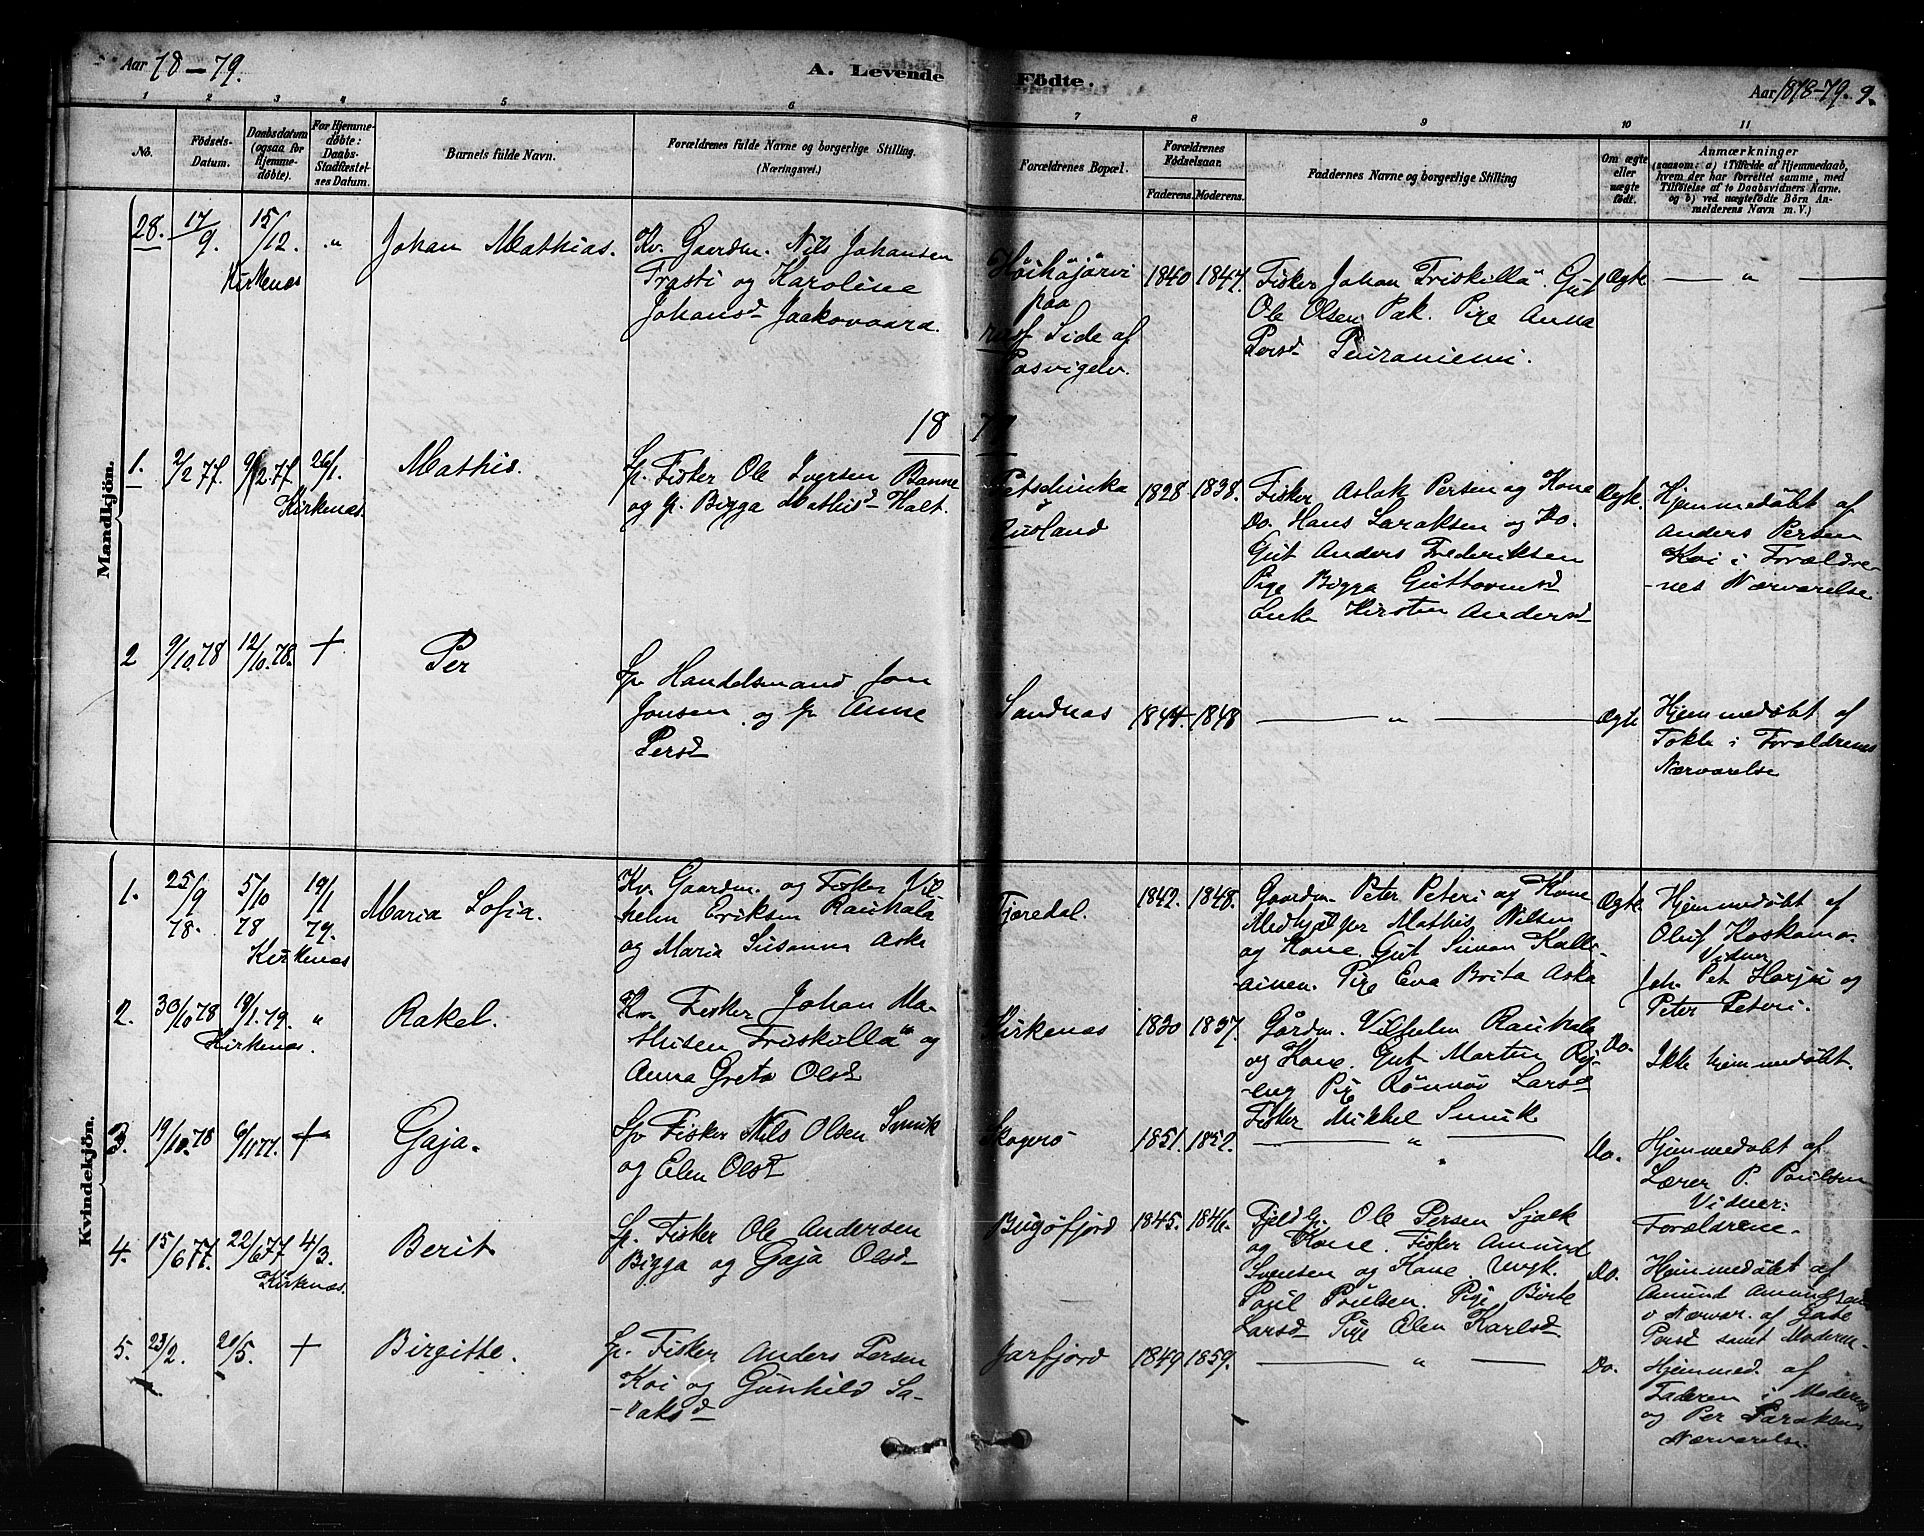 Aar 78-79.
A. Levende
Födte.
Aar 1878-79. 9.
1 2 3 4 5 6 7 8 9 10 11
No.
Födsels-
Datum.
Daabsdatum
(ogsaa for
Hjemme-
döbte).
For Hjemme-
döbte:
Daabs-
Stadfæstel-
ses Datum.
Barnets fulde Navn.
Forældrenes fulde Navne og borgerlige Stilling.
(Næringsvei.)
Forældrenes Bopæl.
Forældrenes
Födselsaar.
Faderens. Moderens.
Faddernes Navne og borgerlige Stilling
Om ægte
eller
uægte
födt.
Anmærkninger
(saasom: a) i Tilfælde af Hjemmedaab,
hvem der har forrettet samme, med
Tilföielse af to Daabsvidners Navne.
og b) ved uægtefödte Börn An-
melderens Navn m. V.)
Mandkjön.
28. 17/9. 15/12. "
Kirkenæs
Johan Mathias.
Kv. Gaardm. Nils Johansen
Trasti og Karoline
Johansd Jaakovaara.
Höihöjärvi
paa
russ Side af
Pasvigelv.
1840 1847.
Fisker Johan Friskillä. Gut
Ole Olsen Pak. Pige Anna
Persd Peuraniemi.
Ægte
— " —
18 79
1. 2/2 77. 9/2 77. 26/1.
Kirkenæs.
Mathis.
Lp. Fisker Ole Iversen Banne
og lp. Bigga Mathisd Halt.
Petschinka
i
Rusland
1828 1838.
Fisker Aslak Persen og Kone
Do. Hans Saraksen og Do.
Gut Anders Frederiksen
Pige Bigga Guttormsd
Enke Kirsten Andersd
Ægte.
Hjemmedöbt af
Anders Persen
Koi i Forældre-
-nes Nærværelse.
2 9/10.78 12/10.78. +
Per
Lp Handelsmand Jon
Jonsen og lp Anne
Persd
Sandnæs
1844. 1848
— " —
Ægte
Hjemmedöbt af
Tokle i Forældrenes
Nærværelse
Kvindekjön.
1. 25/9 78. 5/10 78 19/1 79.
Kirkenæs
Maria Sofia.
Kv. Gaardm. og Fisker Vil-
helm Eriksen Rauhala
og Maria Susanna Aska
Fjæredal.
1842. 1848.
Gaardm. Peter Peteri og Kone
Medhjælper Mathis Nilsen
og Kone. Gut Simon Kalli-
ainen. Pige Eva Brita Aska
Ægte
Hjemmedöbt af
Oluf Koskamo.
Vidner
Joh. Pet Harju og
Peter Peteri.
2. 30/10 78 19/1.79. "
Kirkenæs.
Rakel.
Kv. Fisker Johan Ma-
thisen Friskillä og
Anna Greta Olsd
Kirkenæs
1830 1837.
Gårdm. Vilhelm Rauhala
og Kone. Gut Martin
Pige Rönnöv Larsd
Fisker Mikkel Smuk
Do.
Ikke hjemmedöbt.
3. 19/10.78 6/11 77. +
Gaja.
Lp Fisker Nils Olsen Smuk
og Elen Olsd
Skogerö
1851. 1852.
— " —
Do.
Hjemmedöbt af
Lærer P. Poulsen
Vidner:
Forældrene.
4. 15/6 77. 22/6 77 4/3.
Kirkenæs.
Berit
Lp. Fisker Ole Andersen
Bigga og Gaja Olsd
Bugöfjord
1845. 1846.
Fjeldlp. Ole Persen Sjaek
og Kone. Fisker Amund
Svensen og Kone Ungk.
Poul Poulsen. Pige Birte
Larsd Pige Elen Karlsd
Do.
Hjemmedöbt af
Amund Amundsen
i Nærvær. af
Persd samt Moderen.
5. 23/2. 20/5. +
Birgitte.
Lp. Fisker Anders Persen
Koi og Gunhild Sa-
-raksd
Jarfjord
1849 1859.
— " —
Do.
Hjemmed. af
Faderen i Moderens
og Per Saraksens
Nærværelse.